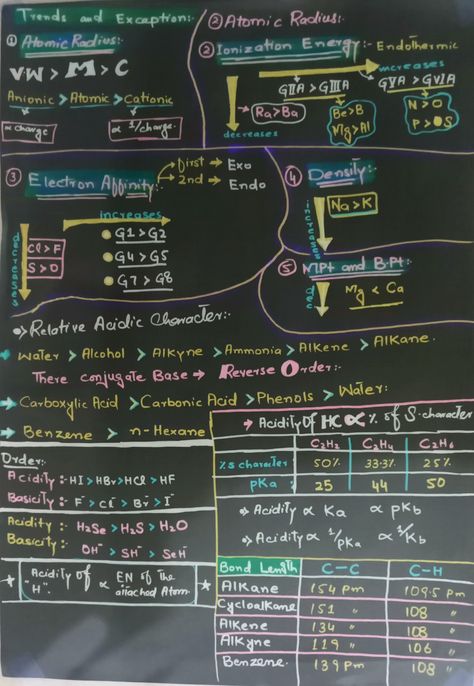 Trends and Exception:-
① Atomic Radius:-
VW > M > C
Anionic > Atomic > Cationic
∝ charge
∝ 1/charge
② Atomic Radius:
② Ionization Energy:- Endothermic
increases
decreases
GIIA > GIIIA
GVA > GVIA
Ra > Ba
Be > B
Mg > Al
N > O
P > S
③ Electron Affinity:
first → Exo
2nd → Endo
increases
decreases
Cl > F
S > O
G1 > G2
G4 > G5
G7 > G8
④ Density:-
increases
Na > K
⑤ MPt and B.Pt:-
dec
Mg < Ca
Relative Acidic Character:-
Water > Alcohol > Alkyne > Ammonia > Alkene > Alkane.
There conjugate Base → Reverse Order:-
→ Carboxylic Acid > Carbonic Acid > Phenols > Water:
→ Benzene > n-Hexane
Order:-
Acidity:- HI > HBr > HCl > HF
Basicity:- F⁻ > Cl⁻ > Br⁻ > I⁻
Acidity:- H2Se > H2S > H2O
Basicity:- OH⁻ > SH⁻ > SeH⁻
* Acidity of "H". ∝ EN of the attached Atom. *
→ Acidity Of HC ∝ % of S-character
C2H2 C2H4 C2H6
% S character 50% 33.3% 25%
pKa 25 44 50
→ Acidity ∝ Ka ∝ pKb
→ Acidity ∝ 1/pKa ∝ 1/Kb
Bond Length C–C C–H
Alkane 154 pm 109.5 pm
Cycloalkane 151 " 108 "
Alkene 134 " 108 "
Alkyne 119 " 106 "
Benzene. 139 pm 108 "